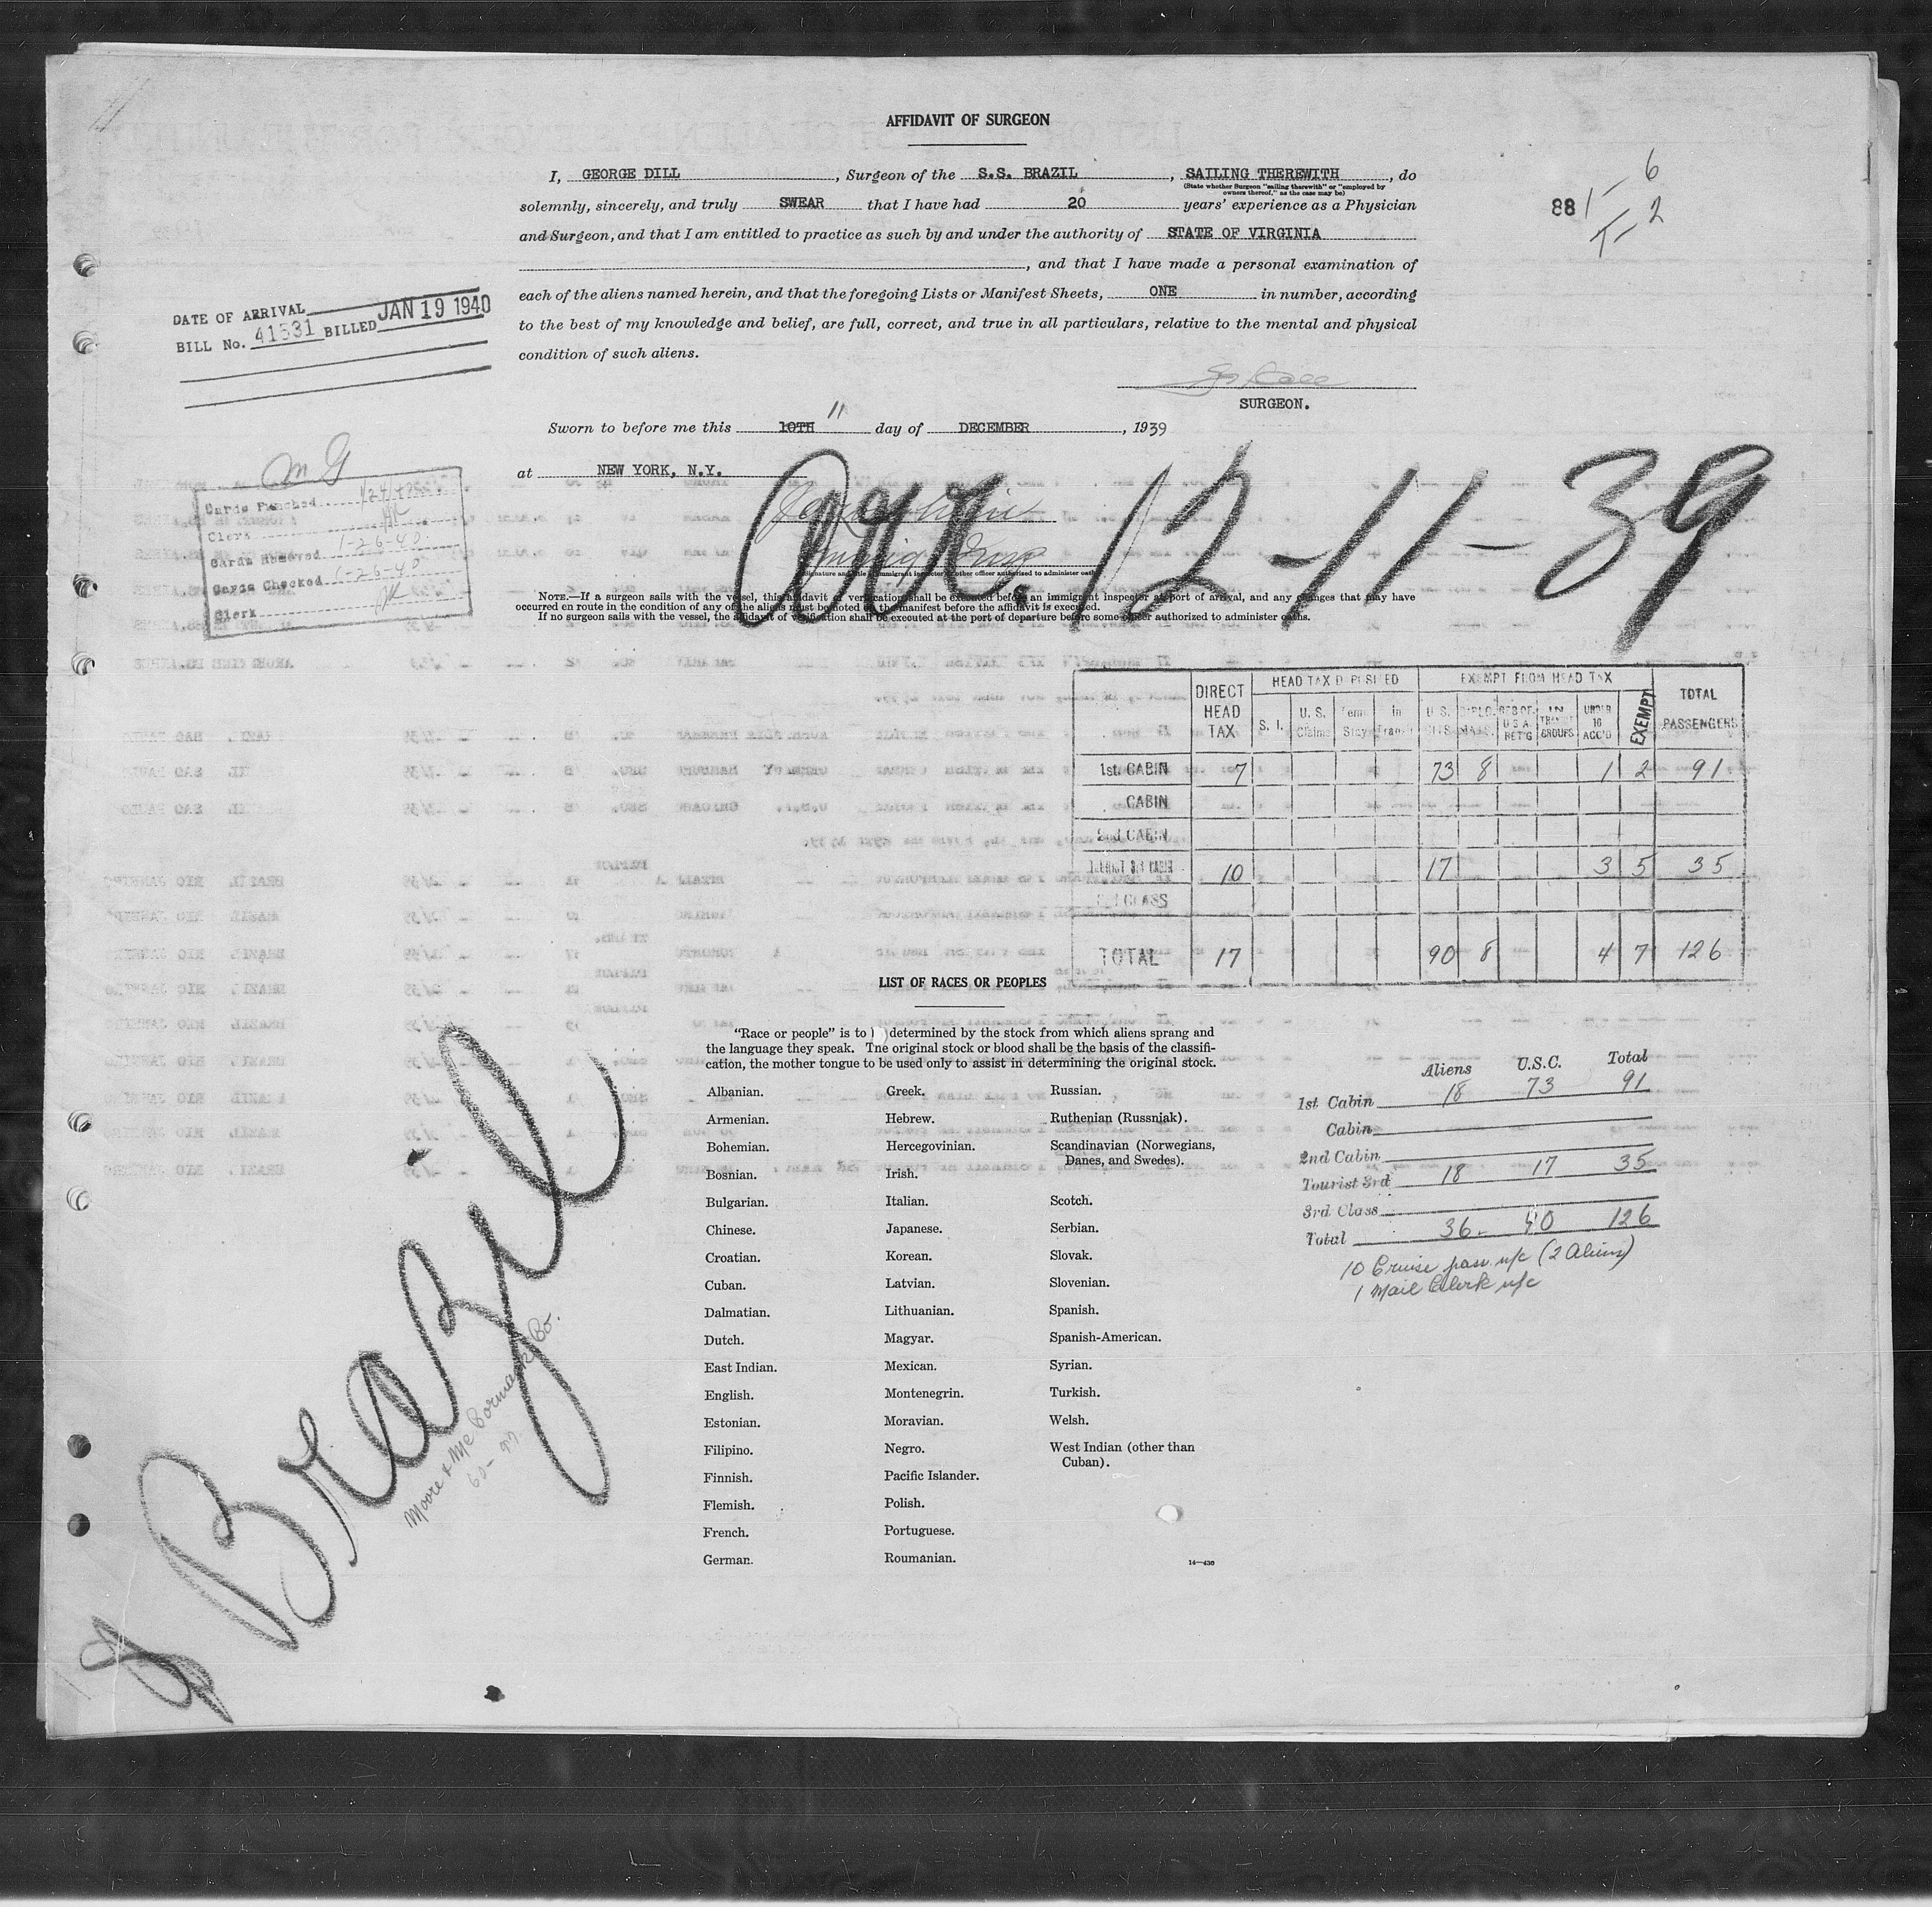 AFFIDAVIT OF SURGEON
I, GEORGE DILL, Surgeon of the S.S. BRAZIL, SAILING THEREWITH, do
(State whether Surgeon "sailing therewith" or "employed by
owners thereof," as the case may be)
solemnly, sincerely, and truly SWEAR that I have had 20 years' experience as a Physician
and Surgeon, and that I am entitled to practice as such by and under the authority of STATE OF VIRGINIA
, and that I have made a personal examination of
each of the aliens named herein, and that the foregoing Lists or Manifest Sheets, ONE in number, according
to the best of my knowledge and belief, are full, correct, and true in all particulars, relative to the mental and physical
condition of such aliens.
SURGEON.
88
6
2
DATE OF ARRIVAL
BILL No. 41531 BILLED JAN 19 1940
Sworn to before me this 10TH 11 day of DECEMBER, 1939
at NEW YORK, N.Y.
Arr. 12-11-39
Cards Punched
Clerk
Cards Removed 1-26-40
Cards Checked 1-26-40
Clerk
(Signature and title of immigrant inspector or other officer authorized to administer oaths)
NOTE.—If a surgeon sails with the vessel, this affidavit or verification shall be executed before an immigrant inspector at port of arrival, and any changes that may have
occurred en route in the condition of any of the aliens must be noted on the manifest before the affidavit is executed.
If no surgeon sails with the vessel, the affidavit of verification shall be executed at the port of departure before some officer authorized to administer oaths.
DIRECT HEAD TAX | HEAD TAX DEPOSITED | EXEMPT FROM HEAD TAX | TOTAL PASSENGERS
S. I. | U. S. Claims | Temp Stay | In Transit | U. S. CITS. | DIPLO. MATS. | RES OF U S A RET'G | IN TRANSIT GROUPS | UNDER 16 ACC'D | EXEMPT
1st. CABIN 7 73 8 1 2 91
CABIN
2nd CABIN
TOURIST 3rd CABIN 10 17 3 5 35
3rd CLASS
TOTAL 17 90 8 4 7 126
LIST OF RACES OR PEOPLES
"Race or people" is to determined by the stock from which aliens sprang and
the language they speak. The original stock or blood shall be the basis of the classifi-
cation, the mother tongue to be used only to assist in determining the original stock.
Albanian. Greek. Russian.
Armenian. Hebrew. Ruthenian (Russniak).
Bohemian. Hercegovinian. Scandinavian (Norwegians,
Danes, and Swedes).
Bosnian. Irish.
Bulgarian. Italian. Scotch.
Chinese. Japanese. Serbian.
Croatian. Korean. Slovak.
Cuban. Latvian. Slovenian.
Dalmatian. Lithuanian. Spanish.
Dutch. Magyar. Spanish-American.
East Indian. Mexican. Syrian.
English. Montenegrin. Turkish.
Estonian. Moravian. Welsh.
Filipino. Negro. West Indian (other than
Cuban).
Finnish. Pacific Islander.
Flemish. Polish.
French. Portuguese.
German. Roumanian.
14—430
Aliens U.S.C. Total
1st Cabin 18 73 91
Cabin
2nd Cabin
Tourist 3rd 18 17 35
3rd Class
Total 36 90 126
10 Cruise pass. n/c (2 Aliens)
1 Mail Clerk n/c
Brazil
Moore & McCormack Co.